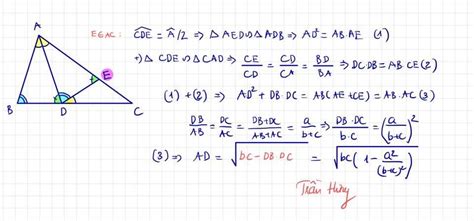 E∈AC: \widehat{CDE} = \widehat{A}/2 ⇒ ΔAED ∽ ΔADB ⇒ AD² = AB.AE (1)
+) ΔCDE ∽ ΔCAD ⇒ CE/CD = CD/CA = BD/BA ⇒ DC.DB = AB.CE (2)
(1) + (2) ⇒ AD² + DB.DC = AB(AE+CE) = AB.AC (3)
DB/AB = DC/AC = (DB+DC)/(AB+AC) = a/(b+c) ⇒ DB.DC/b.c = (a/(b+c))²
(3) ⇒ AD = √(bc - DB.DC) = √(bc(1 - a²/(b+c)²))
Trần Hưng
A
E
B
D
C